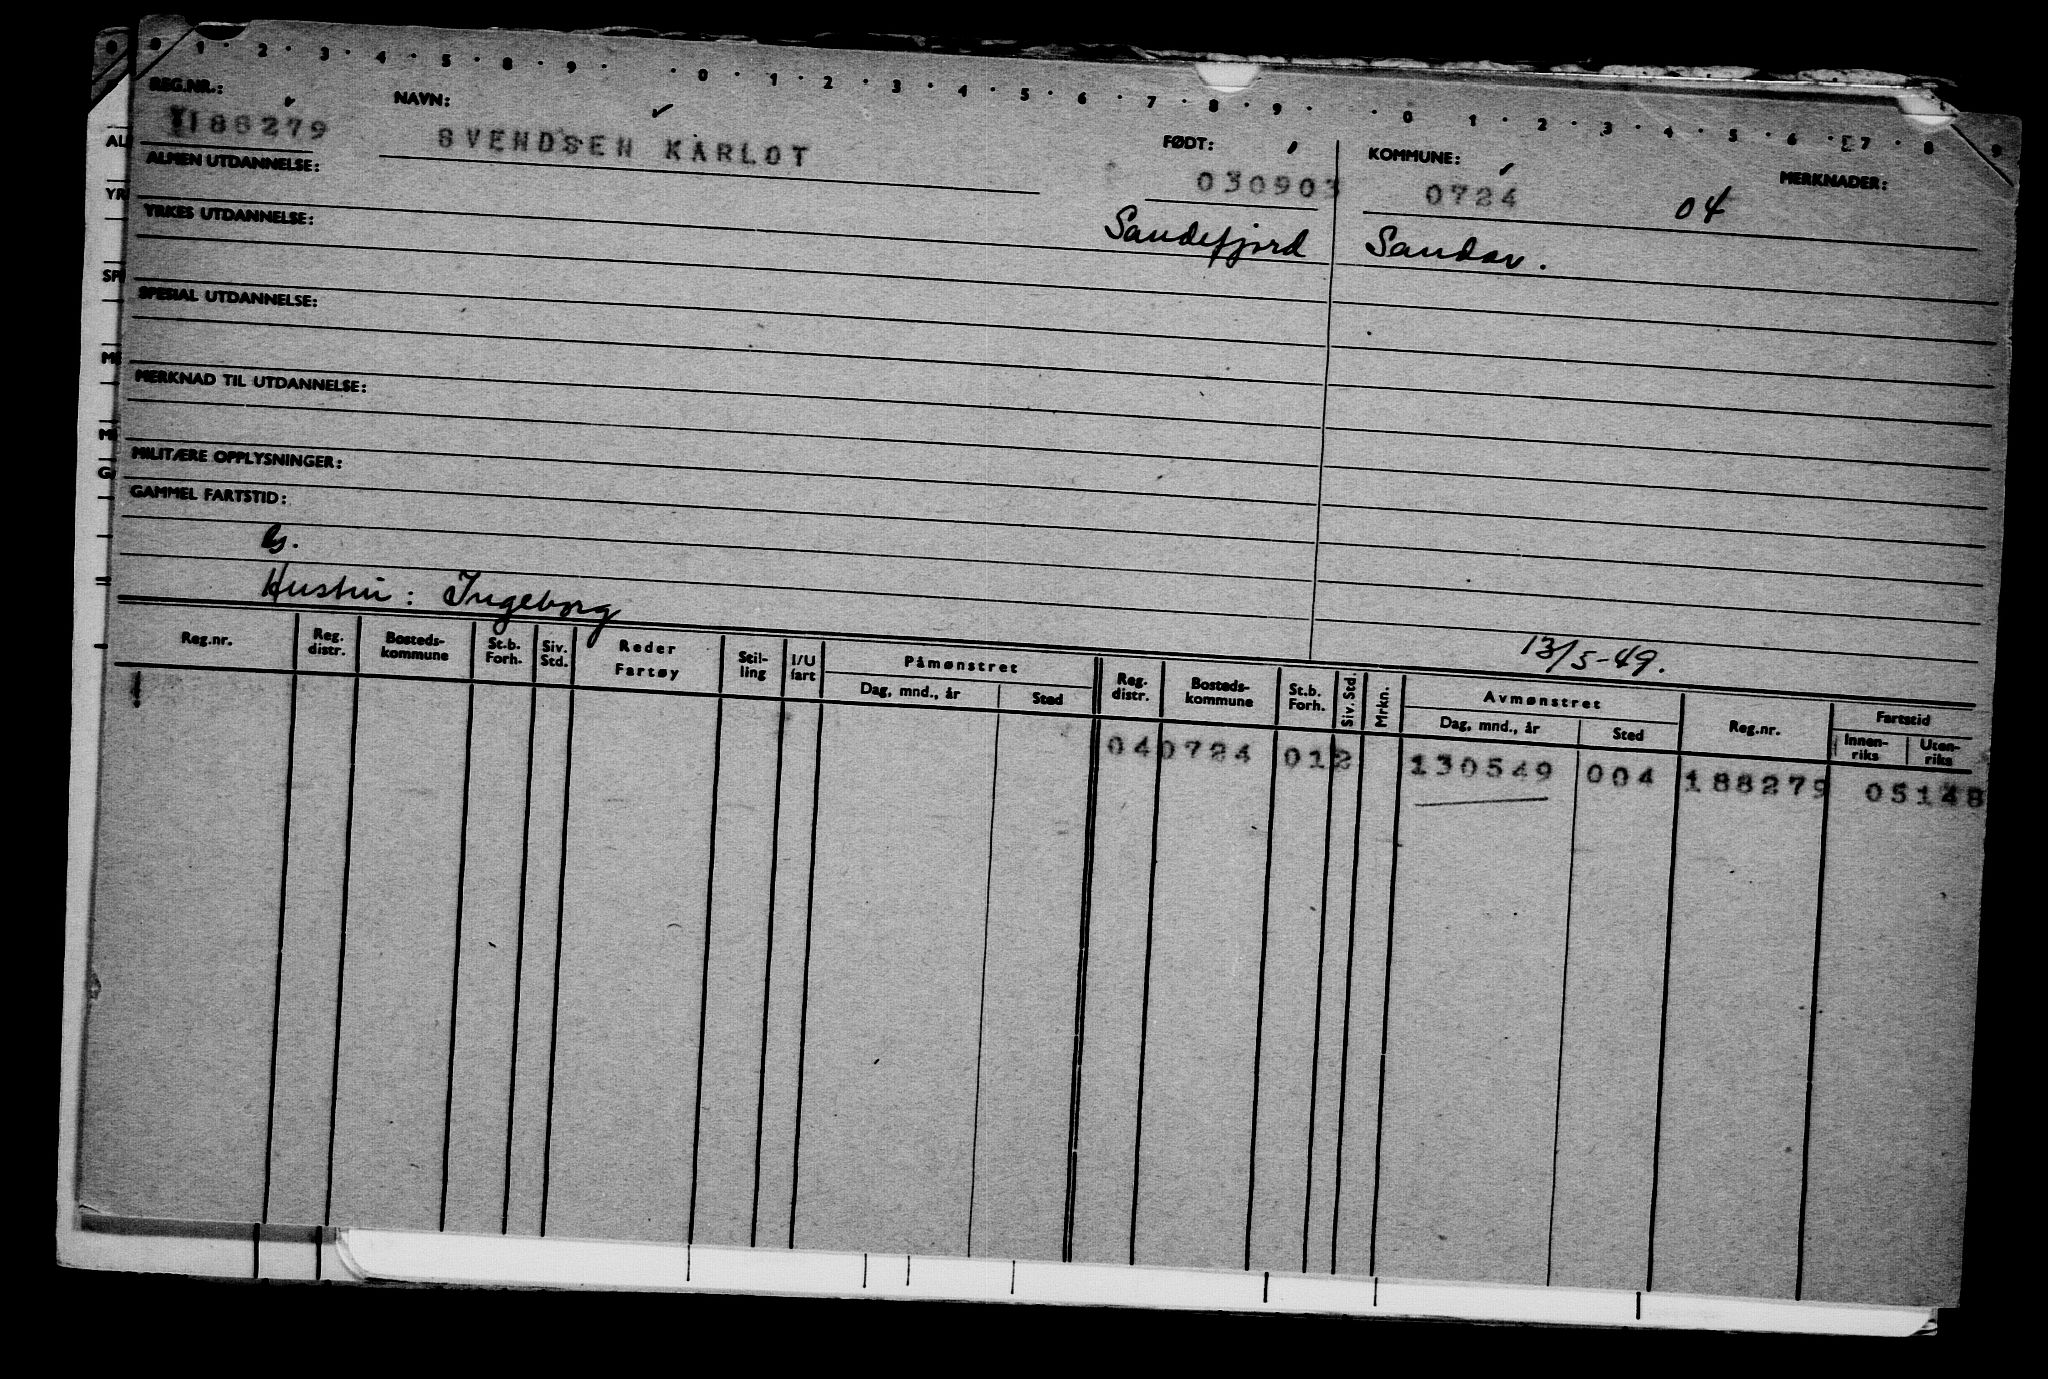 0 1 2 3 4 5 8 9 0 1 2 3 4 5 6 7 8 9 0 1 2 3 4 5 6 7 8 9
REG.NR.: NAVN: FØDT: KOMMUNE: MERKNADER:
188279 SVENDSEN KARLOT 030903 0724 04
ALMEN UTDANNELSE:
Sandefjord Sandar.
YRKES UTDANNELSE:
SPESIAL UTDANNELSE:
MERKNAD TIL UTDANNELSE:
MILITÆRE OPPLYSNINGER:
GAMMEL FARTSTID:
Hustru: Ingeborg
13/5-49.
Reg.nr. Reg. distr. Bosteds-kommune St.b. Forh. Siv. Std. Reder Fartøy Stil-ling I/U fart Påmønstret Dag, mnd., år Sted Reg. distr. Bosteds-kommune St.b. Forh. Siv. Std. Mrkn. Avmønstret Dag, mnd., år Sted Reg.nr. Fartstid Innen-riks Uten-riks
04 0724 01 2 130549 004 188279 05148